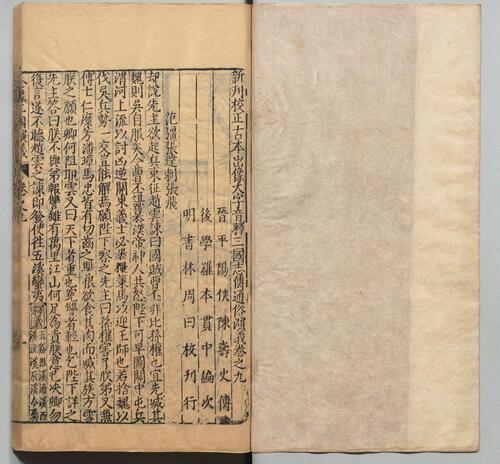 新刊校正古本出像大字音釋三國志傳通俗演義卷之九
晉平陽侯陳壽史傳
後學羅本貫中編次
明書林周曰校刊行
范彊張達刺張飛
却說先主欲起兵東征趙雲諫曰國賊曹丕非比孫權也宜先滅其
魏則吳自服矣今曹丕篡漢神人共怒陛下可早圖關中屯兵
渭河上流以討凶逆關東義士必裹糧策馬以迎王師也若捨魏以
伐吳兵勢一交豈能解焉願陛下察之先主曰孫權害了朕弟又兼
傅士仁糜芳潘璋馬忠皆有切齒之讐恨欲食其肉而滅其族方雪
朕之願也卿何阻耶雲又曰天下者重也冤讐者輕也乞陛下詳之
先主答曰朕不與弟報讐雖有萬里江山何足為貴朕意已决卿勿
復言遂不聽趙雲之諫即發使往五溪蠻夷
三國演義 卷之九